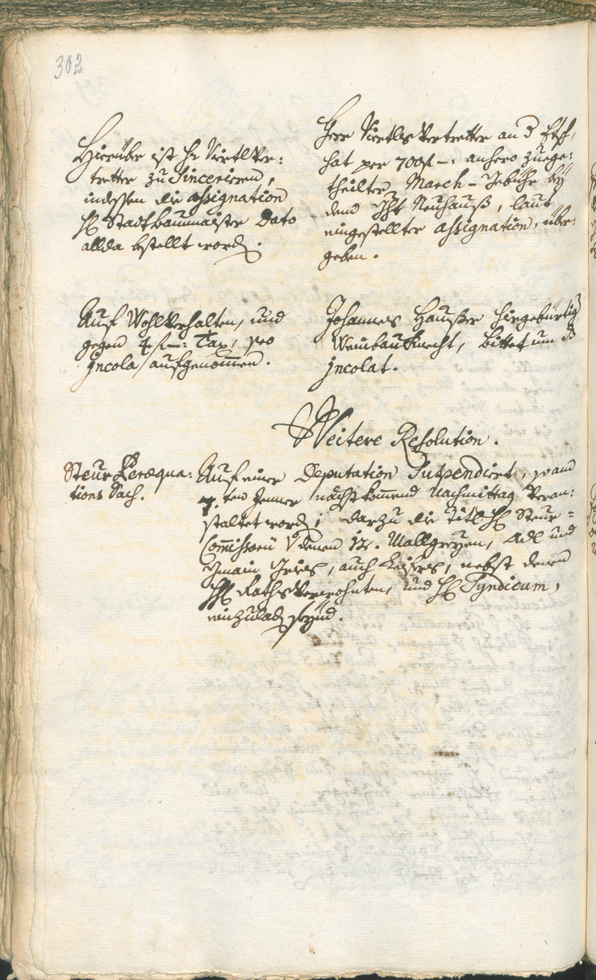 302
Hierüber ist H: Viertlver:
tretter zu Sinceriren,
indessen die assignation
H: Stadtbaumaister dato
allda bstellt wordn.
Herr Viertls Vertretter an d Etsch,
hat per 700 f –: anhero zuege:
theilter, March – Gebühr by
dem Neuhauß, laut
eingestellter assignation, über:
geben.
Auf Wohlverhalten, und
gegen 4 f –: Tax, pro
Incola aufgenommen.
Johannes Haußer hiegebürtig
Weinbauknecht, bittet um ds
Incolat.
Weitere Resolution.
Steur Peræqua:
tions Sach.
Auf einer Deputation Suspendirt, so am
7.ten Jenner nächstkommend Nachmittag veran:
staltet wordn; darzu die Titl H: Steur =
Commissarii Von denen Wallgreyen, Adl und
Gmain Gries, auch Leifers, nebst denen
HH: Raths Verwohnten, und H: Syndicum,
einzuladn seynd.